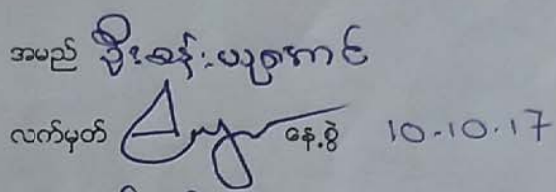 အမည် ဦးခန့်းယုအောင်
လက်မှတ် နေ့စွဲ 10.10.17